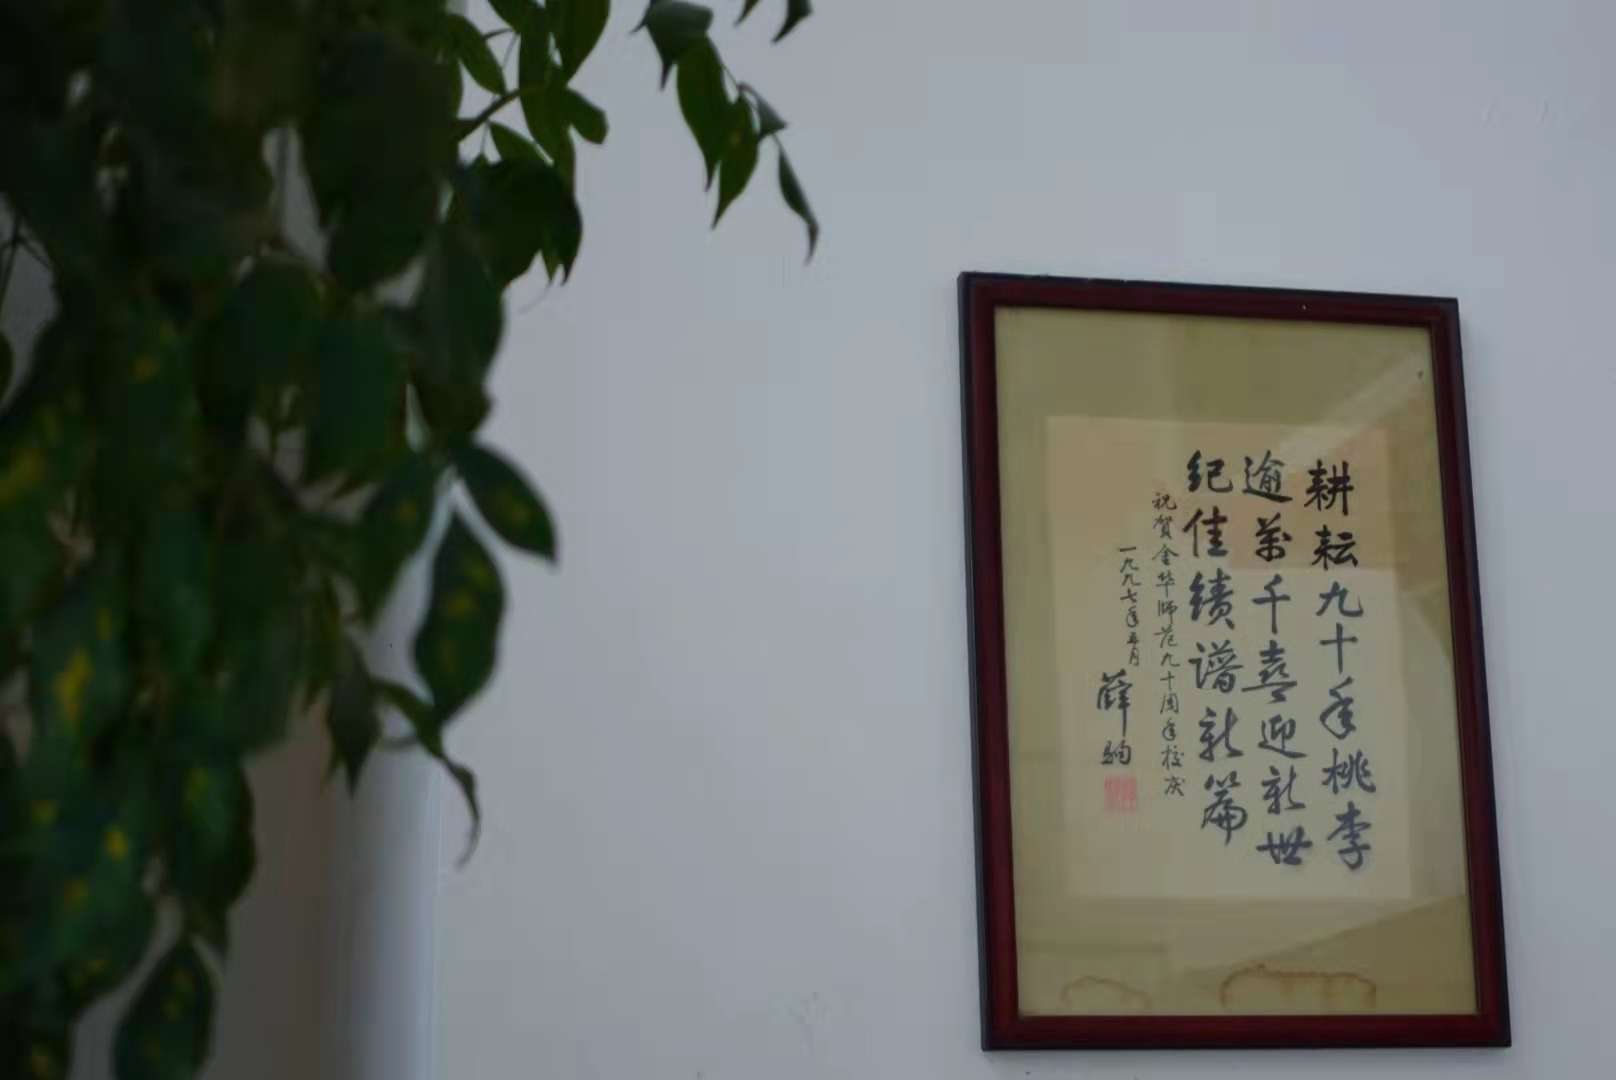 耕耘九十年桃李
逾万千喜迎新世
纪佳绩谱新篇
祝贺金华师范九十周年校庆
一九九七年五月
薛驹